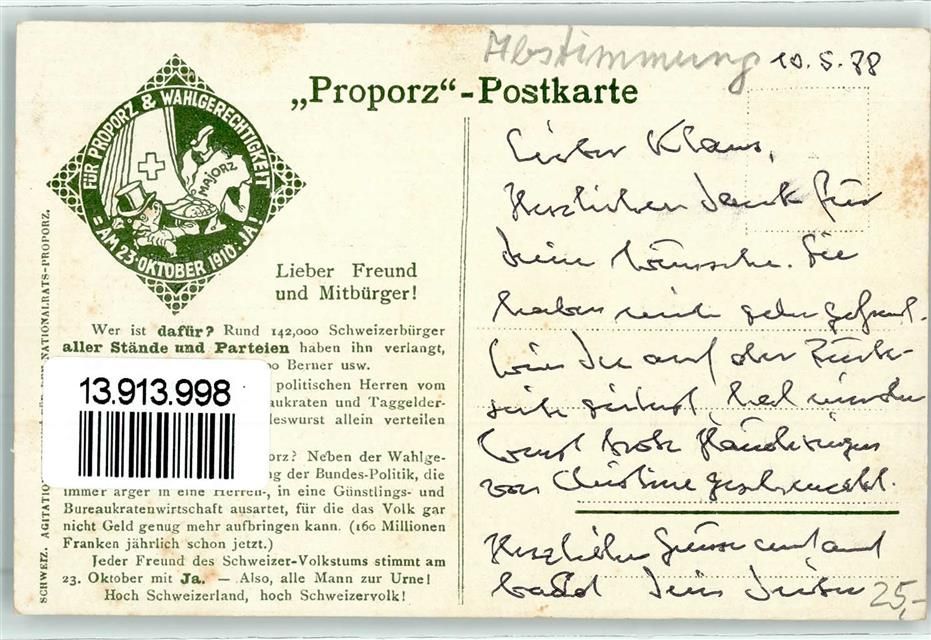 Abstimmung 10.5.88
„Proporz“-Postkarte
FÜR PROPORZ & WAHLGERECHTIGKEIT
MAJORZ
= AM 23. OKTOBER 1910. JA!
Lieber Freund
und Mitbürger!
Wer ist dafür? Rund 142,000 Schweizerbürger
aller Stände und Parteien haben ihn verlangt,
Berner usw.
politischen Herren vom
aukraten und Taggelder-
deswurst allein verteilen
13.913.998
orz? Neben der Wahlge-
g der Bundes-Politik, die
immer ärger in eine Herren-, in eine Günstlings- und
Bureaukratenwirtschaft ausartet, für die das Volk gar
nicht Geld genug mehr aufbringen kann. (160 Millionen
Franken jährlich schon jetzt.)
Jeder Freund des Schweizer-Volkstums stimmt am
23. Oktober mit Ja. — Also, alle Mann zur Urne!
Hoch Schweizerland, hoch Schweizervolk!
SCHWEIZ. AGITATIO NATIONALRATS-PROPORZ.
Lieber Klaus,
Herzlichen Dank für
Deine Wünsche. Sie
haben mich sehr gefreut.
Wie Du auf der Rück-
seite siehst, hat
trotz Händeringen
von Christine geschmeckt.
Herzliche Grüsse und auf
bald Dein
25,-